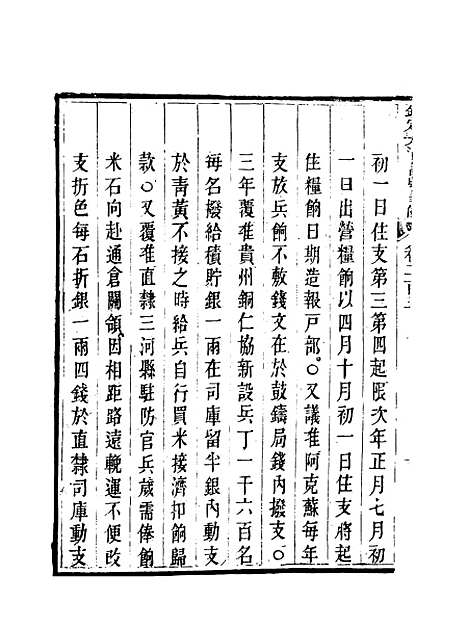 初一日住支第三第四起限次年正月七月初
一日出營糧餉以四月十月初一日住支將起
住糧餉日期造報戸部○又議准阿克蘇每年
支放兵餉不敷錢文在於鼓鑄局錢內撥支○
三年覆准貴州銅仁協新設兵丁一千六百名
每名撥給積貯銀一兩在司庫留半銀內動支
於靑黃不接之時給兵自行買米接濟扣餉歸
款○又覆准直隸三河縣駐防官兵歲需俸餉
米石向赴通倉關領因相距路遠輓運不便改
支折色每石折銀一兩四錢於直隸司庫動支